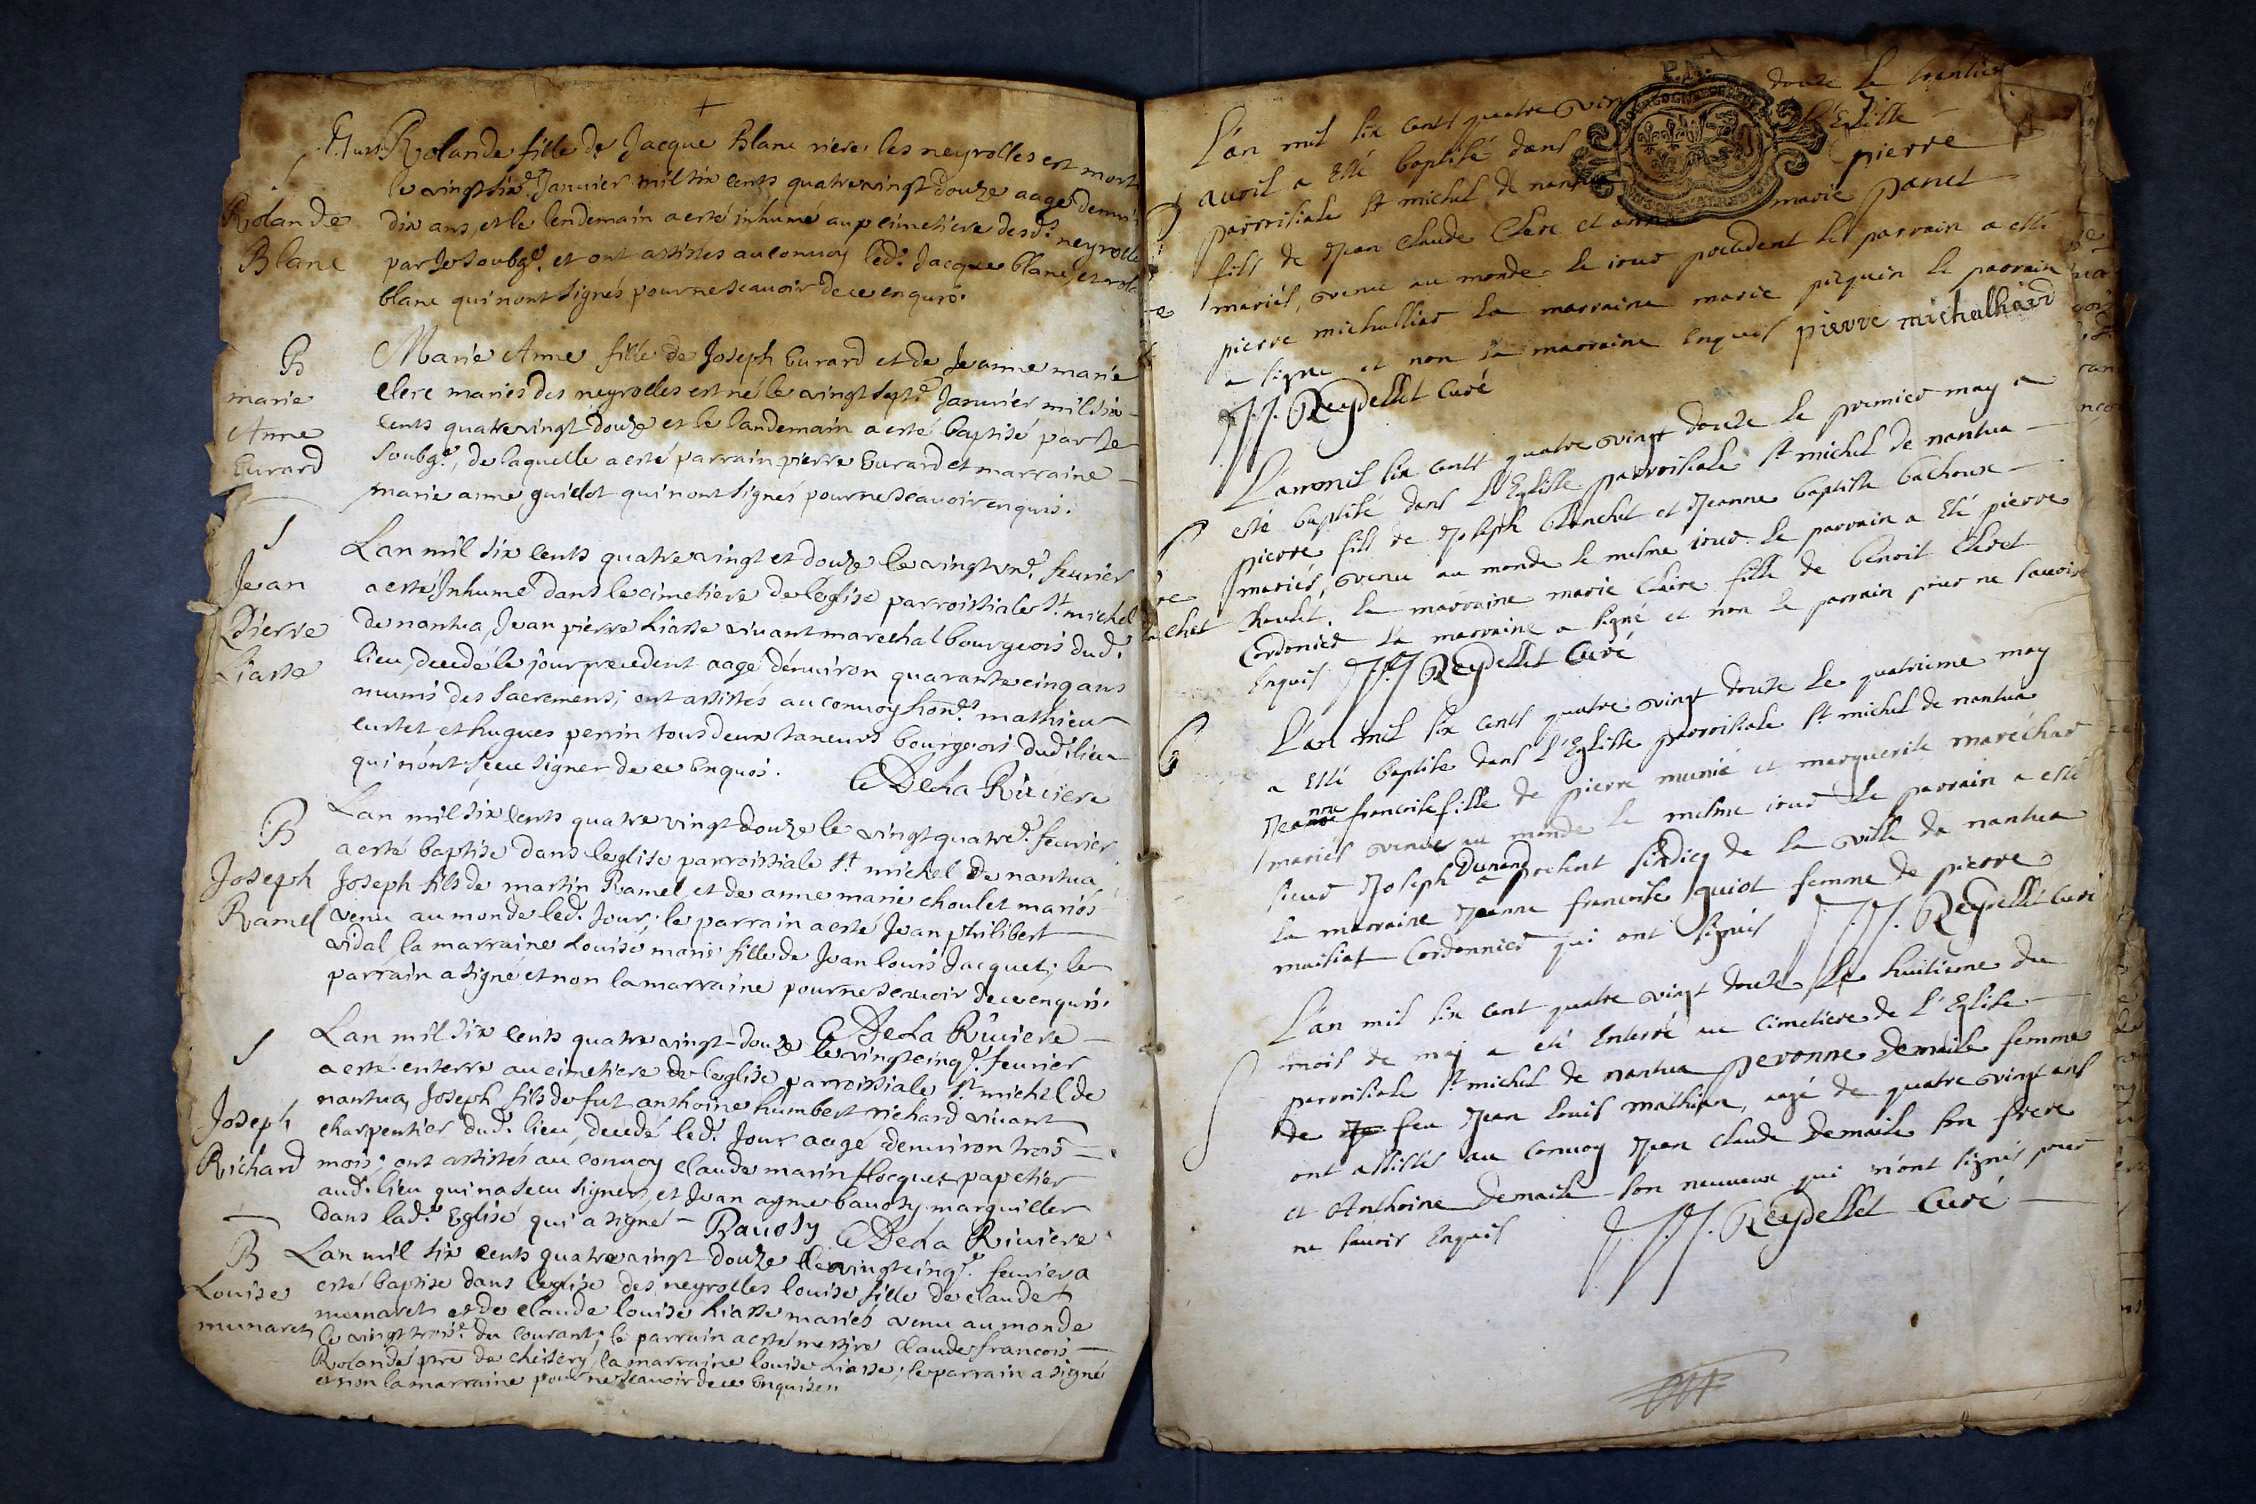 Rolande fille de Jacque Blanc riere les neyrolles est morte
le vingt six.e Janvier mil six cents quatre vingt douze aagé d'envi
dix ans, et le lendemain a esté inhumé au cimetiere desd. neyrolle
par Je soubg.é, et ont assistes au convoy led. Jacque blanc, et
blanc qui n'ont signés pour ne scavoir de ce enquis.
S
Rolande
Blanc
Marie Anne fille de Joseph Eurard et de Jeanne marie
clerc mariés des neyrolles est né le vingt sept.e Janvier mil six
cents quatre vingt douze et le landemain a esté baptisé par Je
soubg.é, de laquelle a esté parrain pierre Eurard et marraine
marie anne guidot qui n'ont signés pour ne scavoir enquis.
B
marie
Anne
Eurard
Lan mil six cents quatre vingt et douze le vingt un.e feurier
a esté Inhumé dans le cimetiere de leglise parroissiale St. michel
de nantua, Jean pierre Liasse vivant marechal bourgeois dud.
lieu, decedé le jour precedent aagé denviron quarante cinq ans
munis des sacrements; ont assistés au convoy hon.es mathieu
curtet et hugues perrin tous deux taneurs bourgeois dud. lieu
qui n'ont sceu signer de ce Enquis. De La Riviere
S
Jean
Pierre
Liasse
Lan mil six cents quatre vingt douze le vingt quatre.e feurier
a esté baptisé dans leglise parroissiale St. michel de nantua
Joseph fils de martin Ramel et de anne marie choulet mariés
venu au monde led. Jour; le parrain a esté Jean philibert
vidal la marraine Louise marie fille de Jean louis Jacquet; le
parrain a signé et non la marraine pour ne scavoir de ce enquis.
De La Riviere
B
Joseph
Ramel
Lan mil six cents quatre vingt-douze le vingt cinq.e feurier
a esté enterre au cimetiere de leglise parroissiale St. michel de
nantua, Joseph fils de fut anthoine humbert richard vivant
charpentier dud. lieu, decedé led. Jour aagé denviron trois
mois; ont assistés au convoy claude marin flocquet papetier
aud. lieu qui n'a sceu signer, et Jean ayme bauosy marguiller
dans lad. Eglise qui a signé - Bauosy De La Riviere
S
Joseph
Richard
Lan mil six cents quatre vingt douze le vingt cinq.e feurier a
esté baptise dans leglise des neyrolles louise fille de claude
munaret et de claude louise Liasse mariés venu au monde
le vingt trois.e du courant; le parrain a esté messire Claude francois
Rolande pre de cheisery, la marraine louise Liasse; le parrain a signé
et non la marraine pour ne scavoir de ce Enquise.
B
Louise
munaret
L'an mil six cents quatre vin douze le trentie
avril a esté baptisé dans l'Eglise
parroisiale St michel de nantua pierre
fils de Jean Claude Clerc et anne marie panet
mariés, venu au monde le iour precedent le parrain a esté
pierre michalliard la marraine marie piquin le parrain
a signe et non la marraine Enquis pierre michalhard
J.J. Reydellet Curé
L'an mil six cents quatre vingt douze le premier may a
esté baptisé dans l'Eglise parroisiale St michel de nantua
pierre fils de Joseph blanchet et Jeanne baptiste bachoux
mariés, venu au monde le mesme iour le parrain a été pierre
la marraine marie Claire fille de benoit Cleret
Cordonier la marraine a signé et non le parrain pour ne savoir
Enquis J.J. Reydellet Curé
chet
L'an mil six cents quatre vingt douze le quatrieme may
a esté baptisé dans l'Eglise parroisiale St michel de nantua
Jeanne francoise fille de pierre munié et marguerite maréchal
mariés venue au monde le mesme iour le parrain a esté
sieur Joseph Durand a present sindicq de la ville de nantua
la marraine Jeanne francoise guiot femme de pierre
maissiat Cordonnier qui ont signés J.J. Reydellet Curé
L'an mil six cent quatre vingt douze le huitieme du
mois de may a eté Enterré au Cimetiere de l'Eglise
parroisiale St michel de nantua pevonne demaile femme
de feu Jean louis mathieu, aagé de quatre vingt ans
ont assistés au Convoy Jean Claude Demaile son frere
et Anthoine Demaile son neuveux qui n'ont signés pour
ne savoir Enquis J.J. Reydellet Curé
S